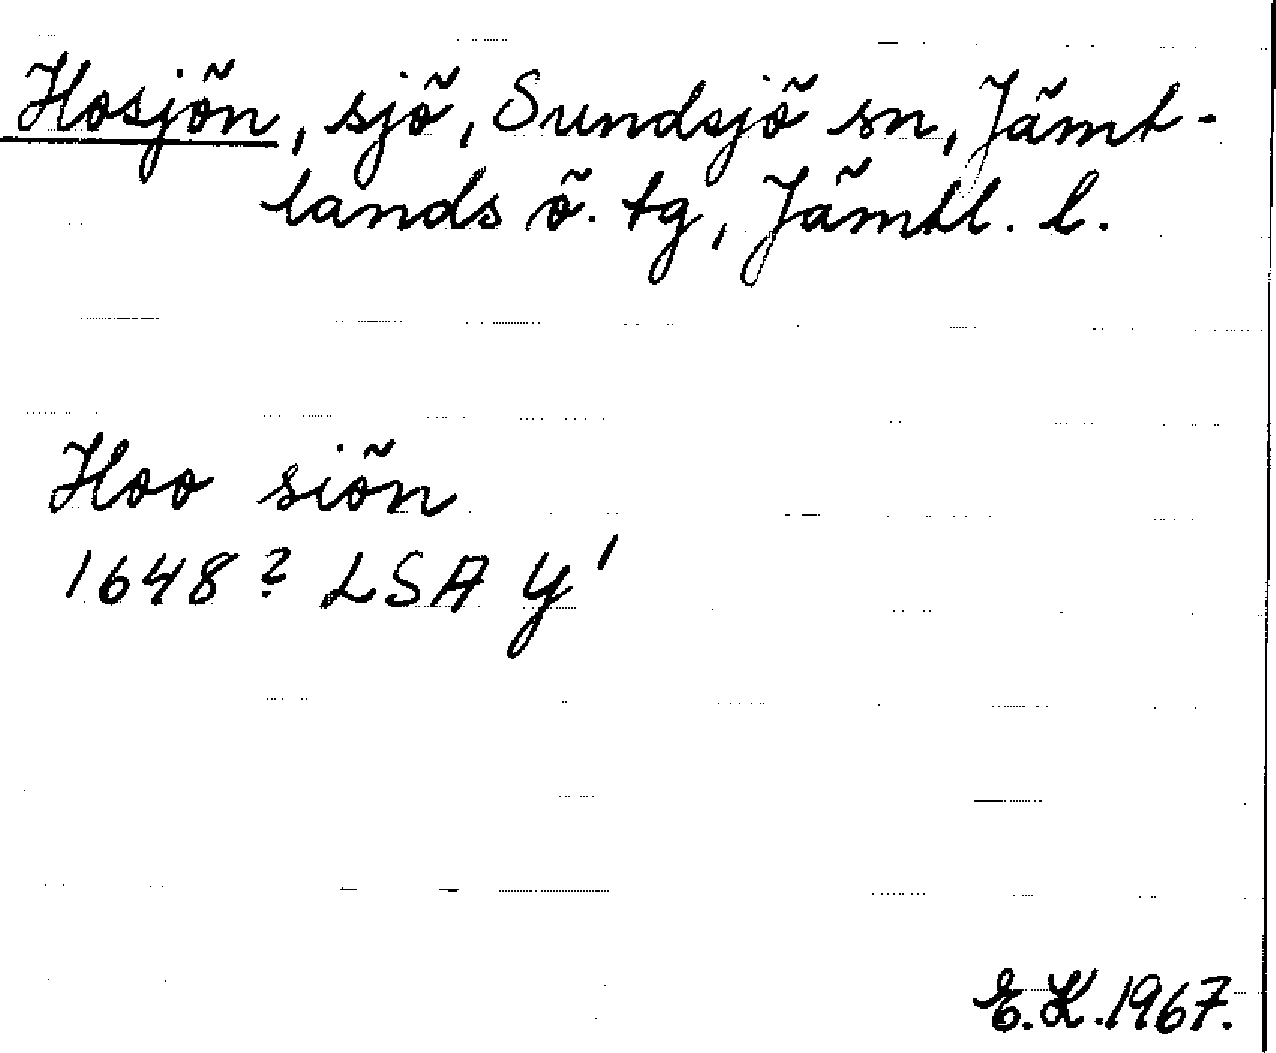 Hosjön, sjö, Sundsjö sn, Jämt-
lands ö. tg, Jämtl. l.
Hoo siön
1648? LSA Y¹
E.K.1967.